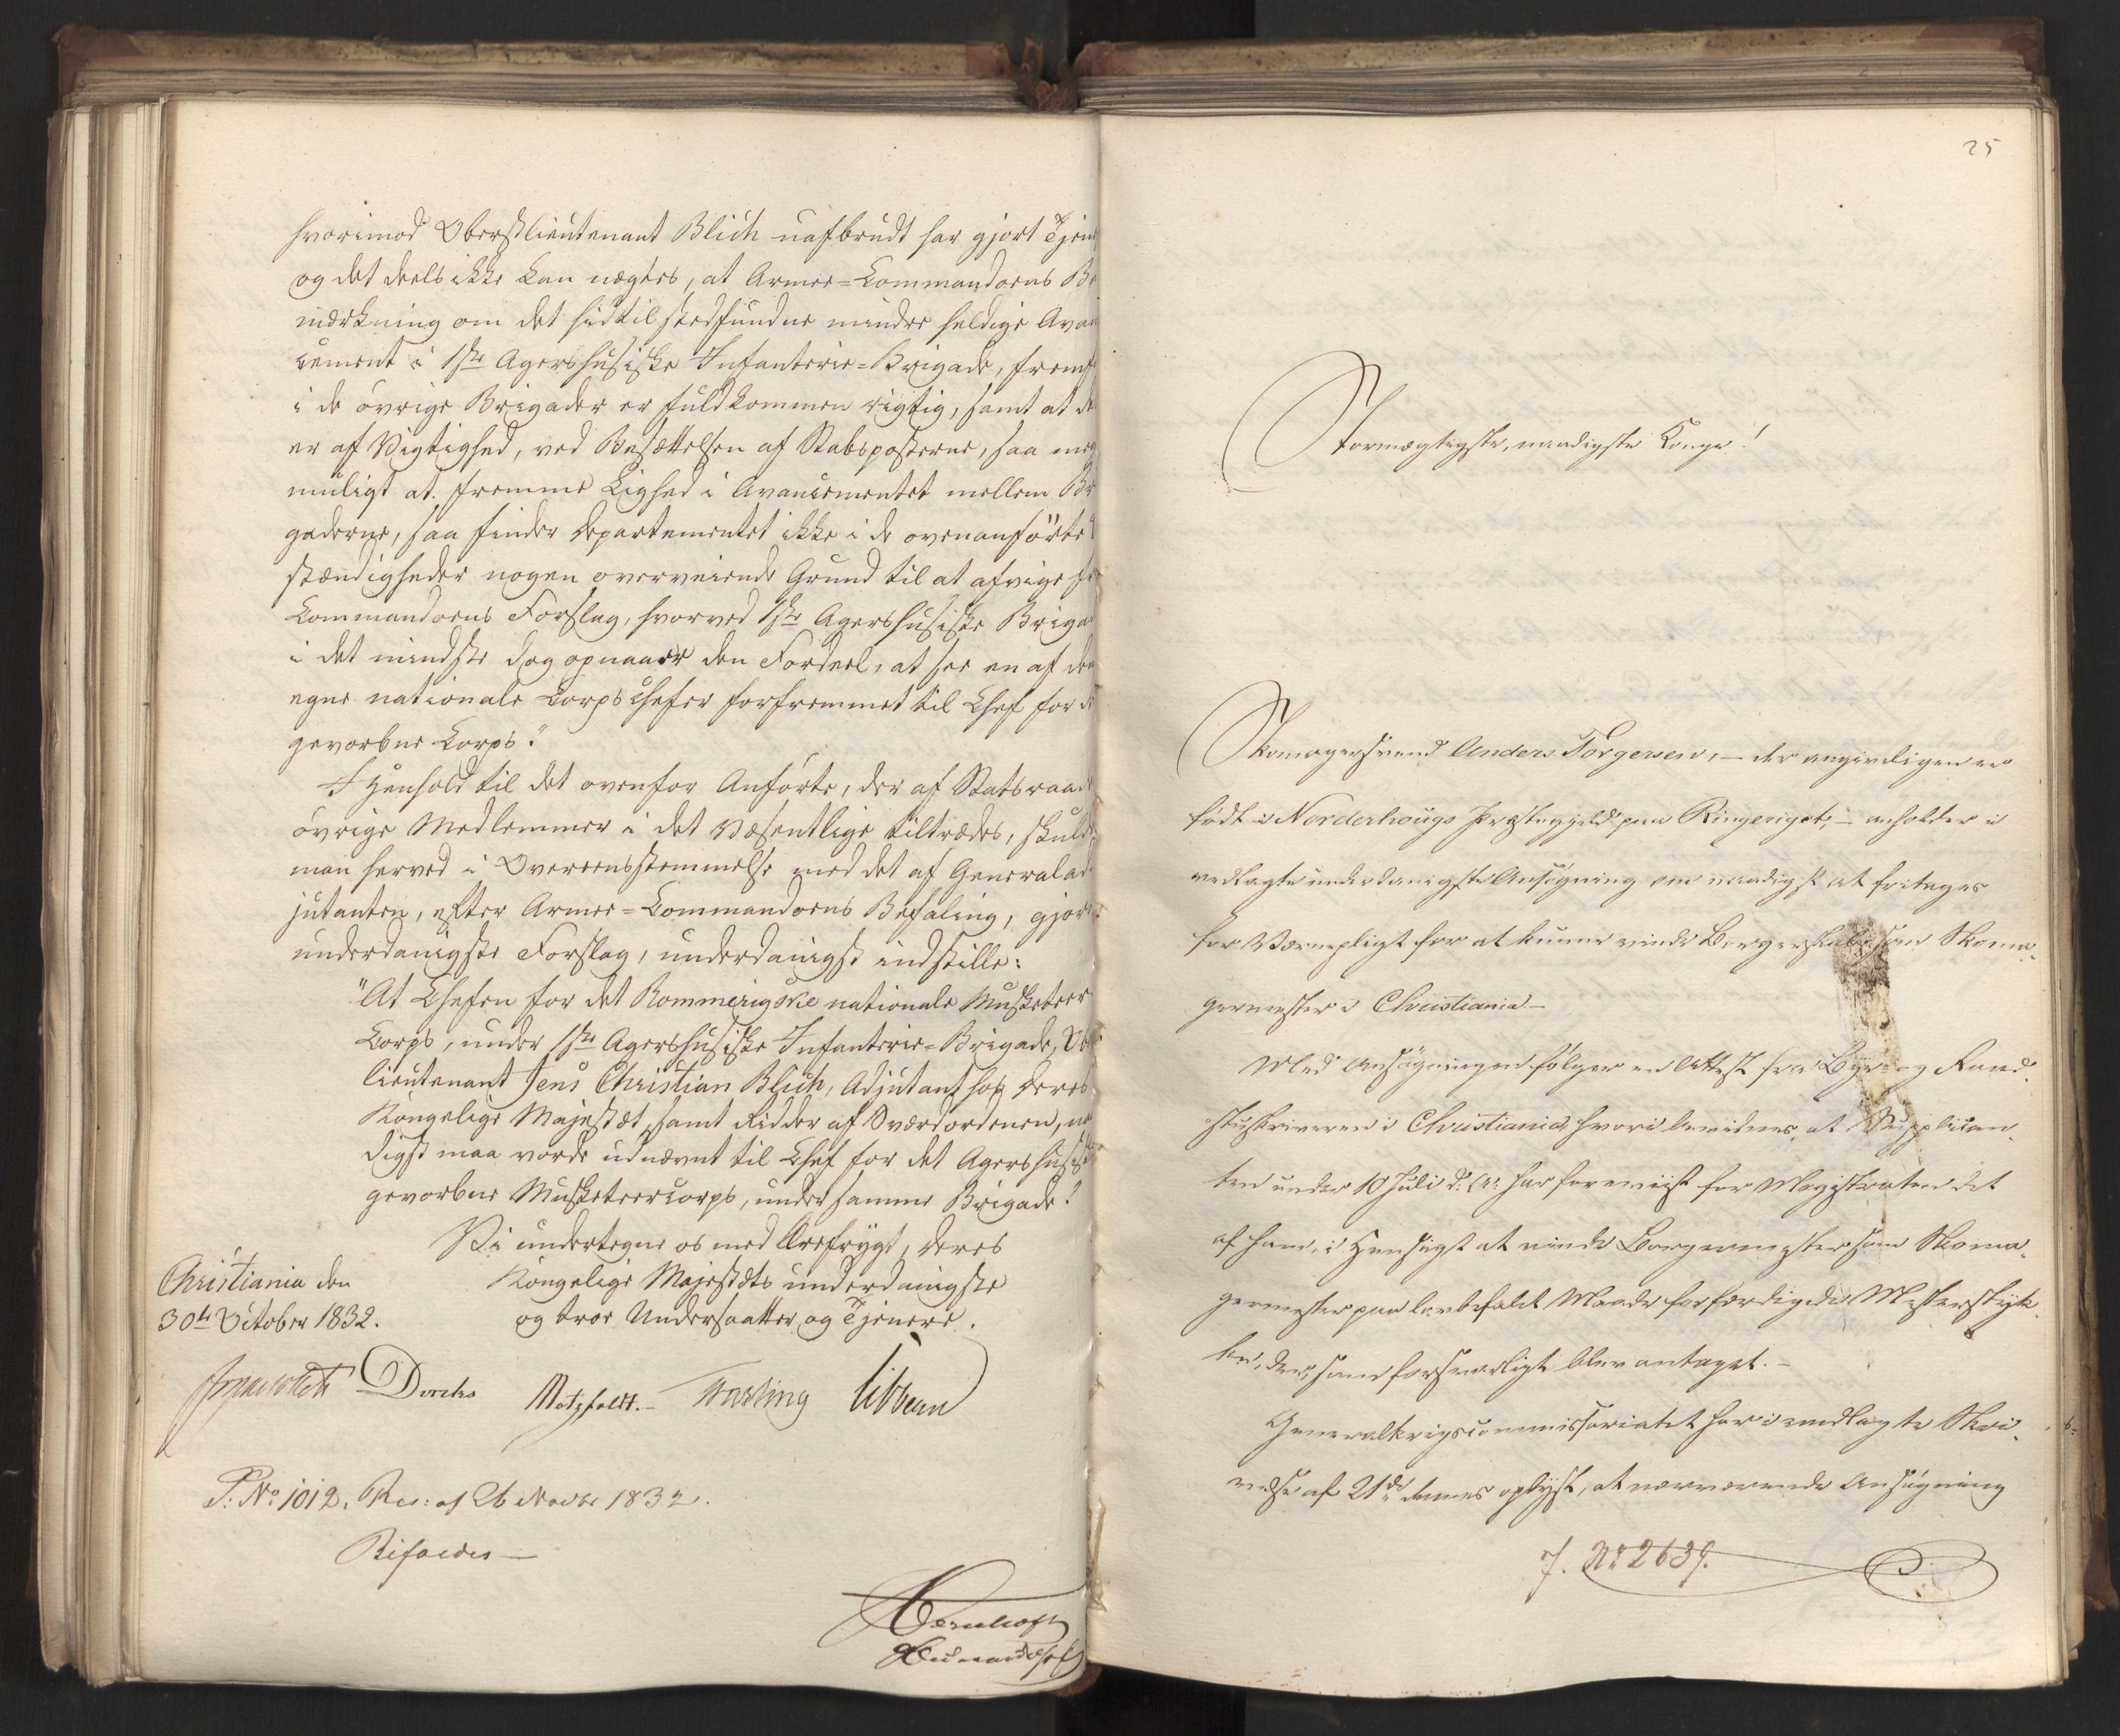 hvorimod Oberstlieutenant Blich uafbrudt har gjort Tjene
og det deels ikke kan nægtes, at Armee-Commandoens Be
mærkning om det hidtil stedfundne mindre heldige Avan
cement i 1ste Agershusiske Infanterie-Brigade, fremfo
i de øvrige Brigader er fuldkommen rigtig, samt at de
er af Vigtighed, ved Besættelsen af Stabsposterne, saa meg
muligt at fremme Lighed i Avancementet mellem Br
gaderne, saa finder Departementet ikke i de ovenanförte
stændigheder nogen overveiende Grund til at afvige fr
Commandoens Forslag, hvorved 1ste Agershusiske Briga
i det mindste dog opnaaer den Fordeel, at see en af de
egne nationale Corpschefer forfremmet til Chef for de
gevorbne Corps."
I Henhold til det ovenfor Anførte, der af Statsraad
øvrige Medlemmer i det Væsentlige tiltrædes, skuld
man herved i Overeensstemmelse med det af Generalad
jutanten, efter Armee-Commandoens Befaling, gjor
underdanigste Forslag, underdanigst indstille:
"At Chefen for det Rommerigske nationale Musketeer
Corps, under 1ste Agershusiske Infanterie-Brigade, Ob
lieutenant Jens Christian Blich, Adjutant hos Deres
Kongelige Majestæt, samt Ridder af Sværdordenen, na
digst maa vorde udnævnt til Chef for det Agershusis
gevorbne Musketeercorps, under samme Brigade."
Vi undertegne os med Ærefrygt, Deres
Christiania den
Kongelige Majestæts underdanigste
30te October 1832.
og troe Undersaatter og Tjenere.
Diriks Motzfeldt. Vibe
P: No 1012. Res: af 26 Novbr 1832.
Bifaldes
25
Stormægtigste, naadigste Konge!
Skomagersvend Anders Torgersen, – der angiveligen er
født i Norderhougs Præstegjeld paa Ringeriget, – anholder i
vedlagte underdanigste Ansøgning om naadigst at fritages
for Værnepligt for at kunne vinde Borgerskab som Skoma-
germester i Christiania –
Med Ansøgningen følger en Attest fra Bye- og Raad-
stuskriveren i Christiania, hvori bevidnes, at Supplican-
ten under 10 Juli d: A: har foreviist for Magistraten det
af ham, i Hensigt at vinde Borgerskab som Skoma-
germester paa lovbefalet Maade forfærdigede Mesterstyk-
ke, der, som forsvarligt blev antaget. –
Generalkrigscommissariatet har i vedlagte Skri-
velse af 21de dennes oplyst, at nærværende Ansøgning
J. No 2639.